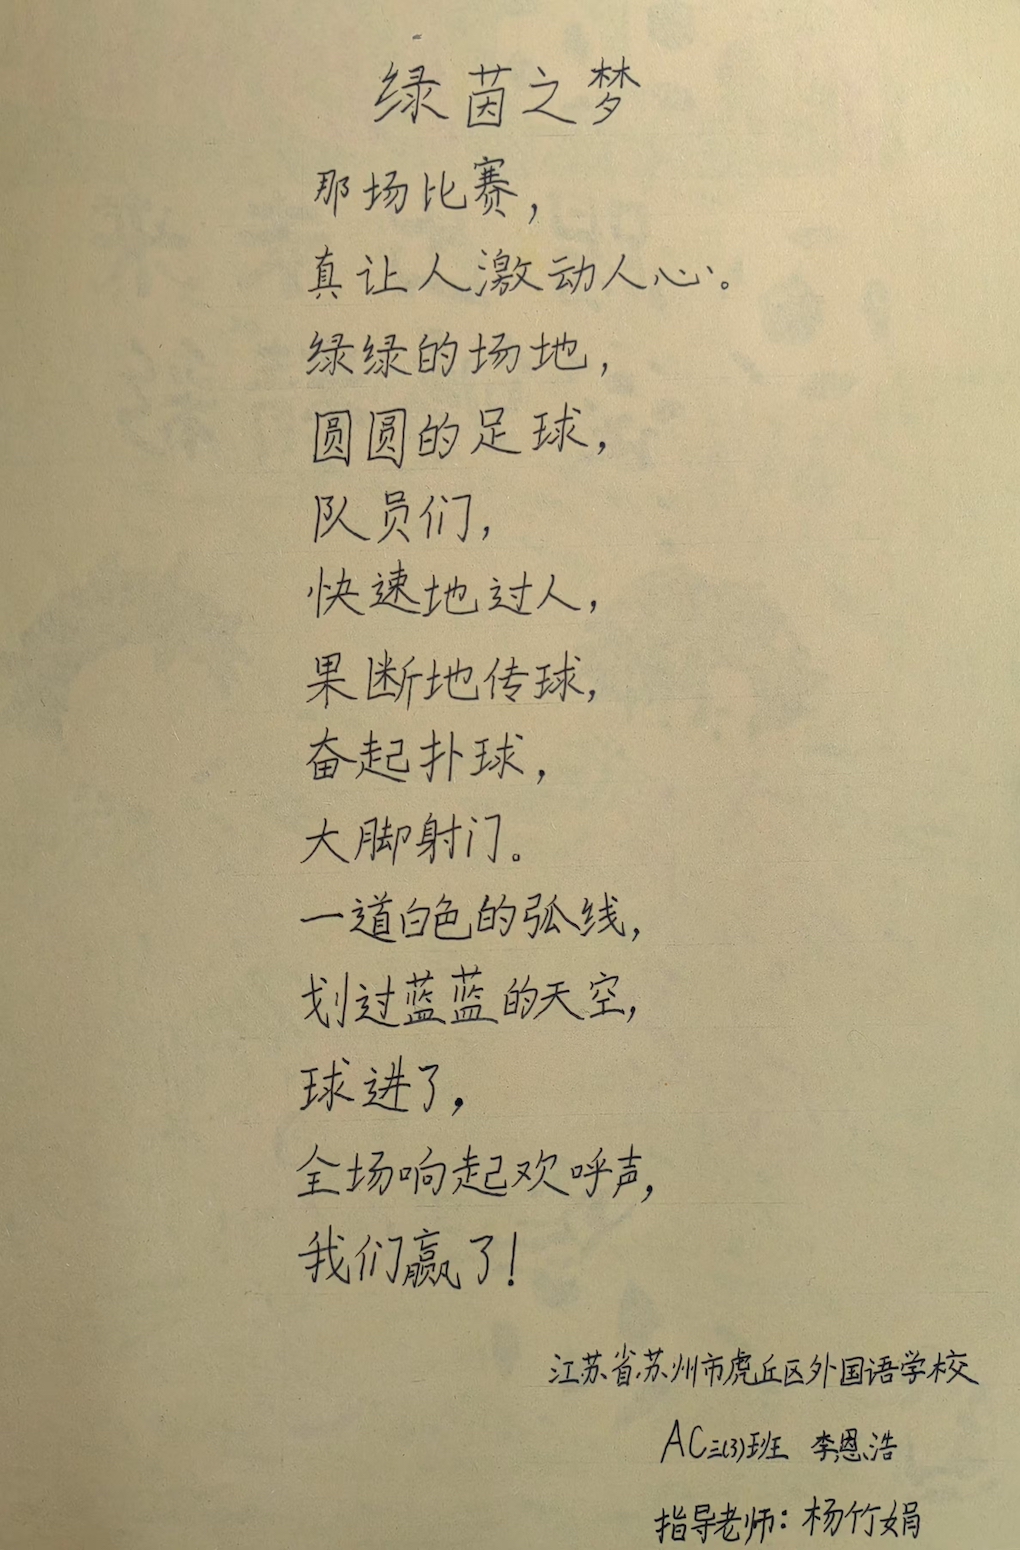 绿茵之梦
那场比赛，
真让人激动人心。
绿绿的场地，
圆圆的足球，
队员们，
快速地过人，
果断地传球，
奋起扑球，
大脚射门。
一道白色的弧线，
划过蓝蓝的天空，
球进了，
全场响起欢呼声，
我们赢了！
江苏省苏州市虎丘区外国语学校
AC三(3)班 李恩浩
指导老师：杨竹娟